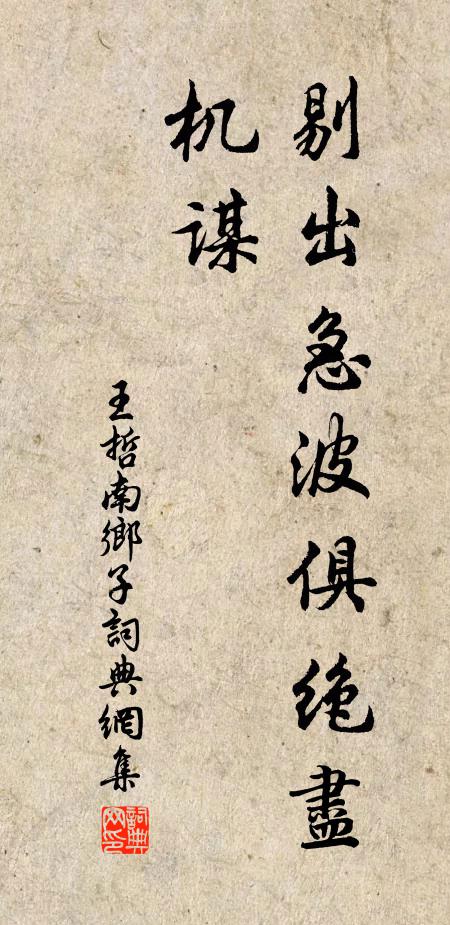 剔出急波俱绝盡
机谋
王哲南鄉子詞典網集
詞典
网印